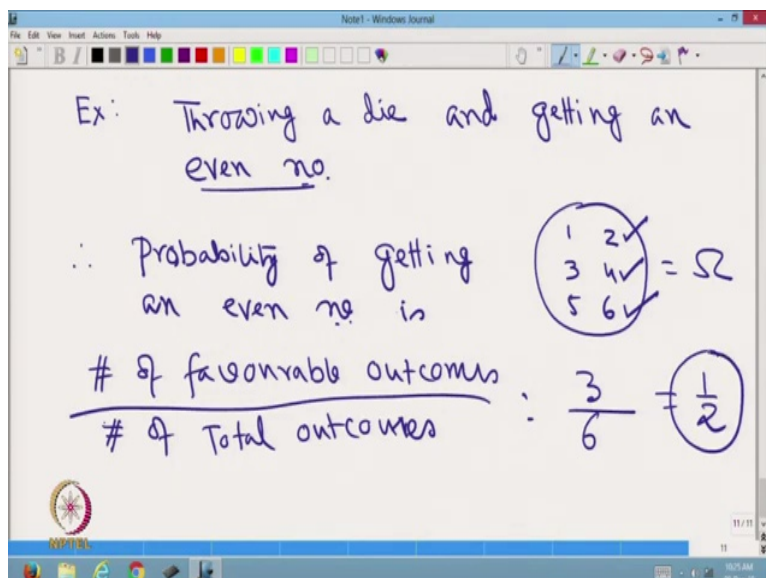 Note1 - Windows Journal
File Edit View Insert Actions Tools Help
B I
Ex: Throwing a die and getting an
even no.
∴ Probability of getting
an even no is
1 2 ✓
3 4 ✓ = Ω
5 6 ✓
# of favourable outcomes
# of Total outcomes
: 3/6 = 1/2
NPTEL
11 / 11
11
10:25 AM